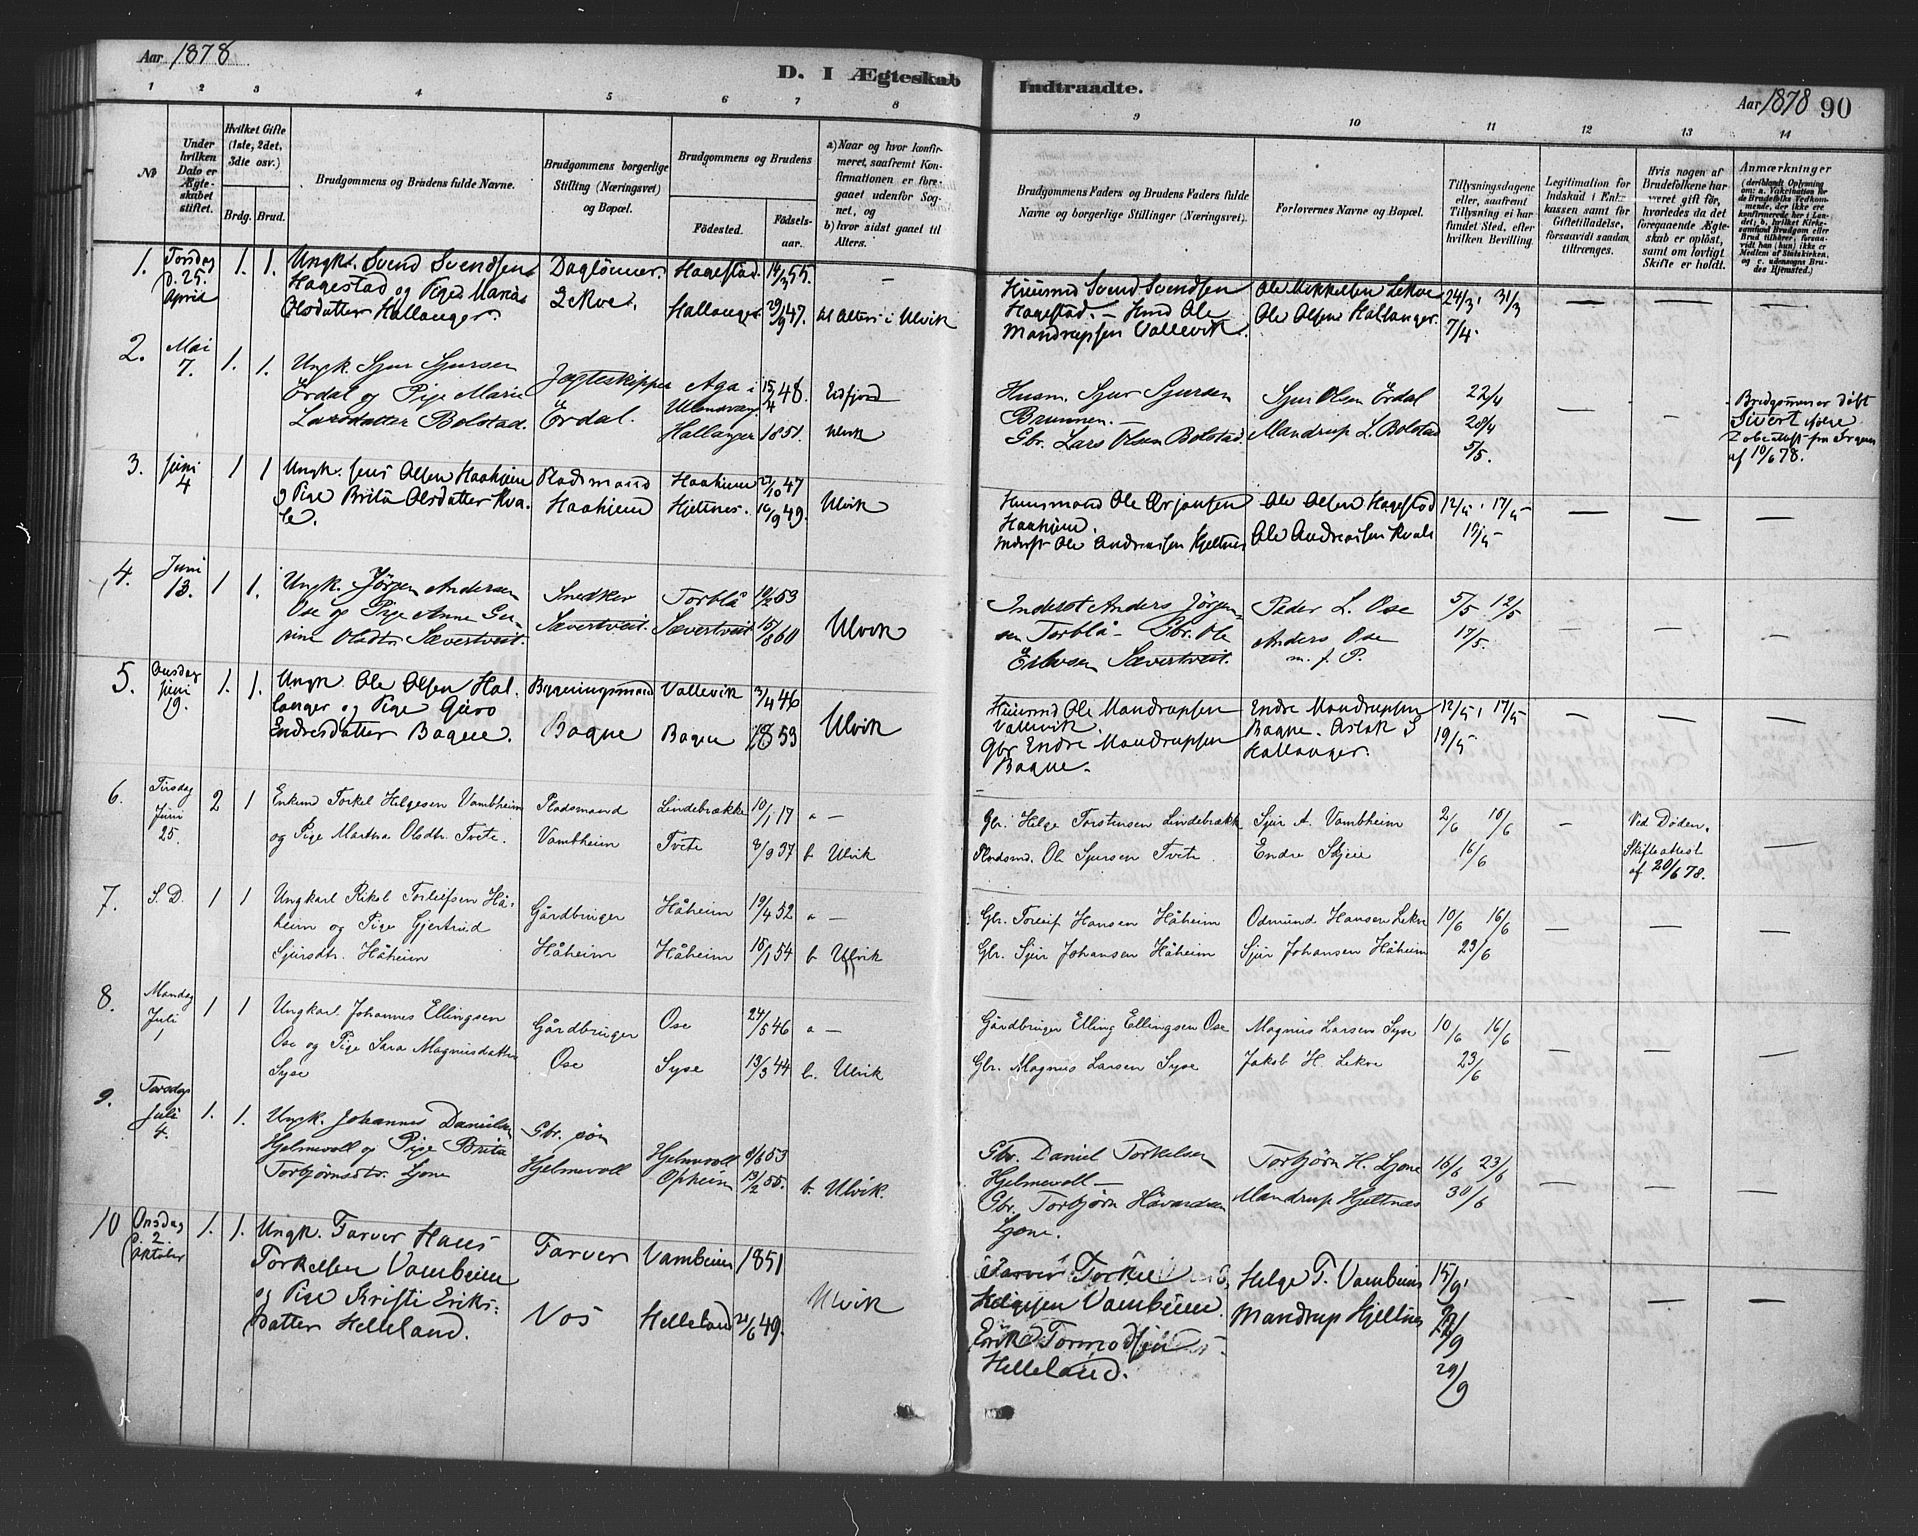 Aar 1878
D. I Ægteskab
Indtraadte.
Aar 1878 90
1 2 3 4 5 6 7 8 9 10 11 12 13 14
No
Under hvilken Dato er Ægteskabet stiftet.
Hvilket Gifte (1ste, 2det, 3die osv.)
Brdg. Brud.
Brudgommens og Brudens fulde Navne.
Brudgommens borgerlige Stilling (Næringsvei) og Bopæl.
Brudgommens og Brudens
Fødested. Fødselsaar.
a) Naar og hvor konfirmeret, saafremt Konfirmationen er foregaaet udenfor Sognet, og
b) hvor sidst gaaet til Alters.
Brudgommens Faders og Brudens Faders fulde Navne og borgerlige Stillinger (Næringsvei).
Forlovernes Navne og Bopæl.
Tillysningsdagene eller, saafremt Tillysning ei har fundet Sted, efter hvilken Bevilling.
Legitimation for Indskud i Enkekassen samt for Giftetilladelse, forsaavidt saadan tiltrænges.
Hvis nogen af Brudefolkene har været gift før, hvorledes da det foregaaende Ægteskab er opløst, samt om lovligt Skifte er holdt.
Anmærkninger
1. Torsdag D. 25. April 1. 1.
Ungk. Svend Svendsen
Hagestad og Pige Maria
Olsdatter Hallanger.
Daglønner
Lekve.
Hagestad. 14/3 55.
Hallanger 29/9 47.
til Alters i Ulvik
Huusmd Svend Svendsen
Hagestad. – Hmd Ole
Mandrupsen Vallevik.
Ole Mikkelsen Lekve
Ole Olsen Hallanger.
24/3, 31/3
7/4.
2. Mai 7. 1. 1.
Ungk. Sjur Sjursen
Erdal og Pige Marie
Larsdatter Bolstad.
Jægteskipper
Erdal.
Aga i
Ullensvang
15/4 48.
Hallanger 1851.
Eidfjord
Ulvik
Husm. Sjur Sjursen
Brunnen.
Gbr. Lars Olsen Bolstad.
Sjur Olsen Erdal
Mandrup L. Bolstad
22/4
28/4
5/5.
Brudgommen er døbt
Sivert ifølge
Døbeattest fra
af 10/6 78.
3. Juni 4 1 1
Ungk. Jens Olsen Haaheim
og Pige Brita Olsdatter Kva-
le.
Pladsmand
Haaheim
Haaheim 27/10 47
Hjeltnes. 16/9 49.
Ulvik
Huusmand Ole Ørjansen
Haaheim.
Inderst Ole Andreassen Hjeltnes
Ole Olsen Hagestad
Ole Andreassen Kvale
12/5, 17/5
19/5
4. Juni 13. 1 1.
Ungk. Jørgen Andersen
Ose og Pige Anne Gu-
rine Olsdtr Sævertveit.
Snedker
Sævertveit.
Torblå 10/2 53
Sævertveit 15/8 60
Ulvik
Inderst Anders Jørgen-
sen Torblå – Gbr. Ole
Erlvsen Sævertveit.
Peder L. Ose
Anders Ose
m. f. P.
5/5 12/5
17/5.
5. Onsdag Juni 19. 1. 1.
Ungk. Ole Olsen Hal-
langer og Pige Guro
Endresdatter Bagne.
Bygningsmand
Bagne
Vallevik 3/4 46
Bagne 53
Ulvik
Huusmd Ole Mandrupsen
Vallevik.
Gbr Endre Mandrupsen
Bagne.
Endre Mandrupsen
Bagne. Aslak S
Hallanger.
12/5, 17/5
19/5
6. Tirsdag Juni 25. 2 1
Enkem Torkel Helgesen Vambheim
og Pige Martha Olsdtr. Tvete.
Pladsmand
Vambheim
Lindebrække 10/1 17
Tveite 8/9 37
a –
b Ulvik
Gbr. Helge Torstensen Lindebrække
Pladsmd. Ole Sjursen Tveite.
Sjur A. Vambheim
Endre Skjeie
2/6 10/6
16/6
Ved Døden.
Skifteattest
af 20/6 78.
7. S. D. 1 1
Ungkarl Rikol Torleifsen Hå-
heim og Pige Gjertrud
Sjursdtr. Håheim
Gårdbruger
Håheim
Håheim 19/4 52
Håheim 15/1 54
a –
b Ulvik
Gbr. Torleif Hansen Håheim
Gbr. Sjur Johansen Håheim
Odmund Hansen Lekve
Sjur Johansen Håheim
10/6 16/6
23/6
8. Mandag Juli 1 1 1
Ungkarl Johannes Ellingsen
Ose og Pige Sara Magnusdatter
Syse
Gårdbruger
Ose
Ose 24/5 46
Syse 13/3 44
a –
b. Ulvik
Gårdbruger Elling Ellingsen Ose
Gbr. Magnus Larsen Syse
Magnus Larsen Syse
Jakob H. Lekve
10/6 16/6
23/6
9. Torsdag Juli 4. 1. 1.
Ungk. Johannes Danielsen
Hjelmevoll og Pige Brita
Torbjørnsdtr. Ljone
Gbr. søn
Hjelmevoll
Hjelmevoll 8/6 53
Opheim 13/2 55.
b. Ulvik.
Gbr. Daniel Torkelsen
Hjelmevoll –
Gbr. Torbjørn Håvardsen
Ljone.
Torbjørn H. Ljone
Mandrup Hjeltnes
16/6 23/6
30/6
10 Onsdag 2. Oktober 1. 1.
Ungk. Farver Hans
Torkelsen Vambeim
og Pige Kristi Eriks-
datter Helleland.
Farver
Vos
Vambeim 1851
Helleland 21/6 49.
Ulvik
Farver Torkel
Helgesen Vambeim.
Erik Tormodsen
Helleland.
Helge T. Vambeim
Mandrup Hjeltnes
15/9,
22/9
29/9